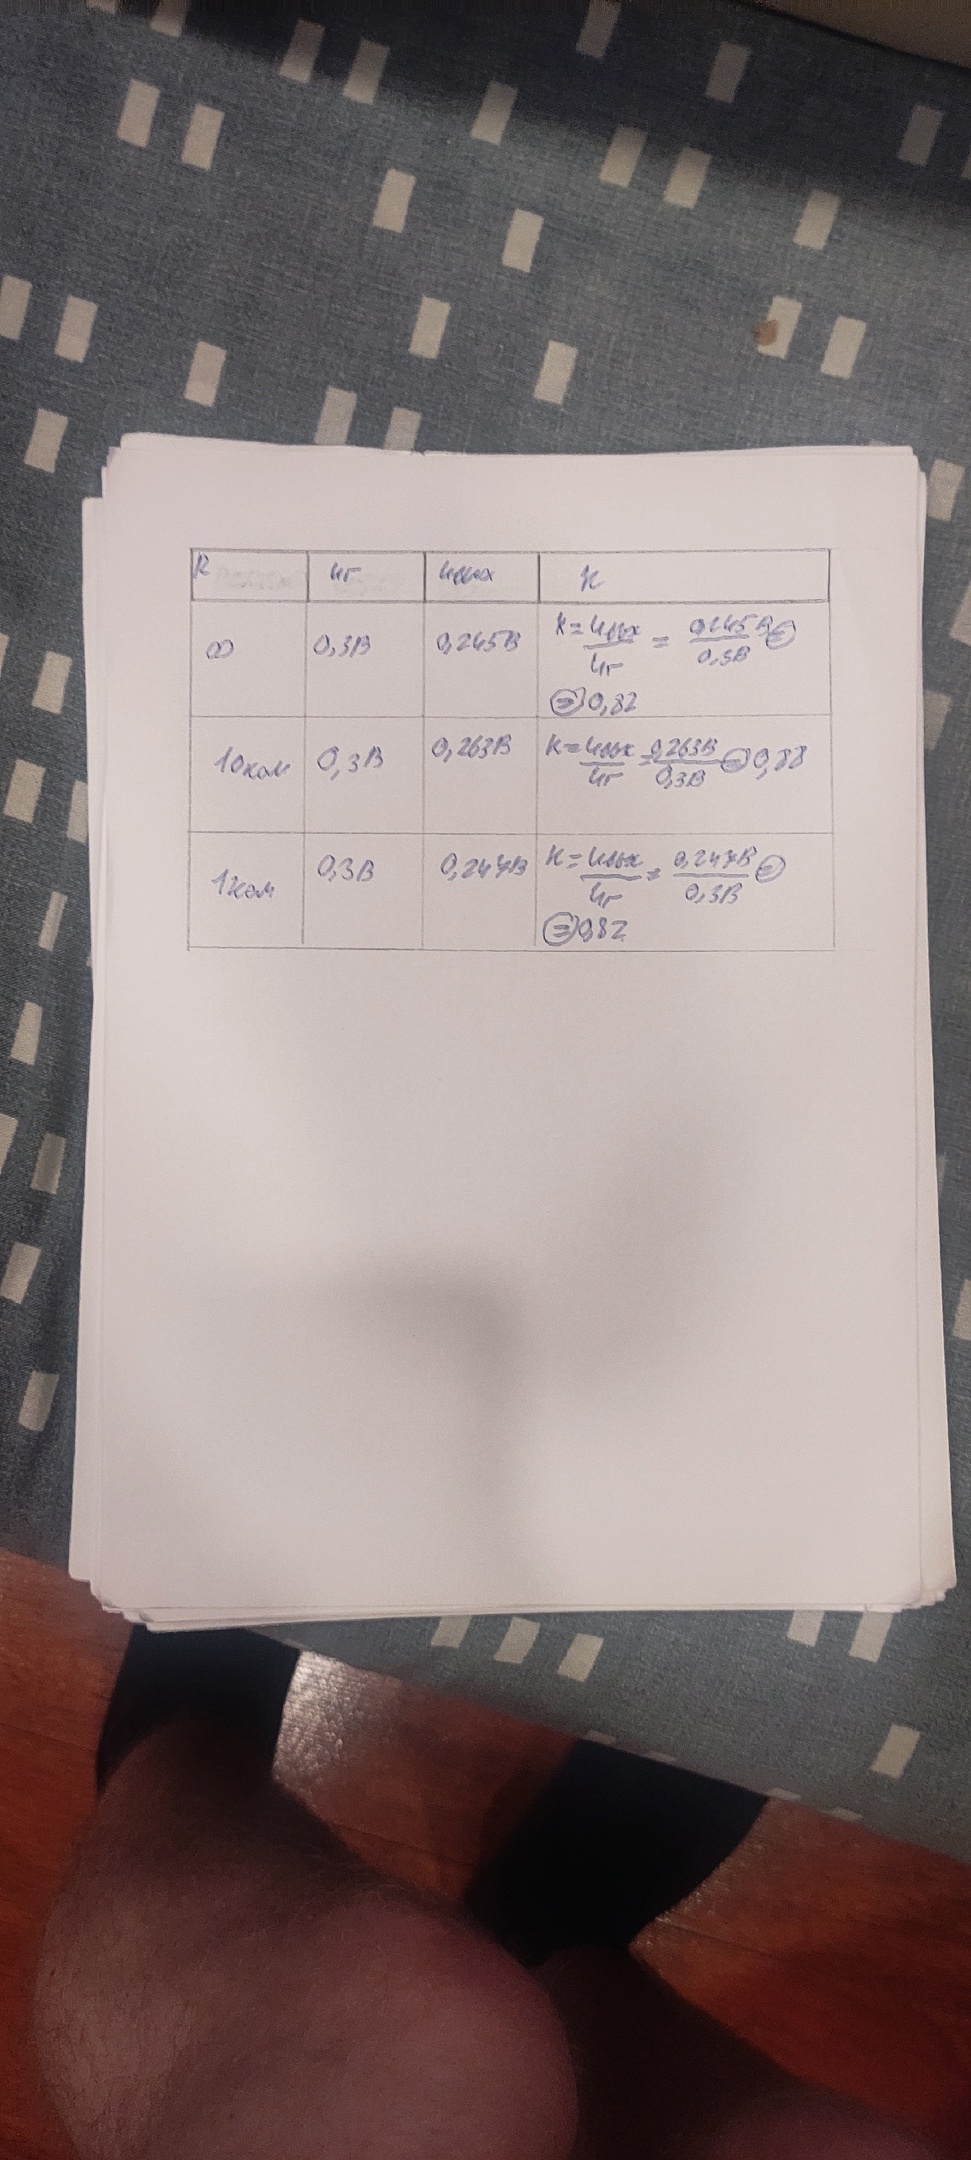 R Uг Uвых К
∞ 0,3В 0,245В К = Uвых/Uг = 0,245В/0,3В =
= 0,82
10ком 0,3В 0,263В К = Uвых/Uг = 0,263В/0,3В = 0,88
1ком 0,3В 0,247В К = Uвых/Uг = 0,247В/0,3В =
= 0,82